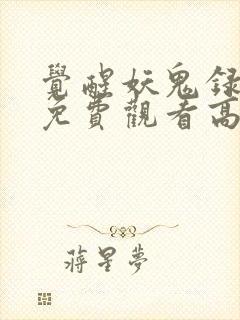 覺醒妖鬼錄
免費觀看高
蔣星夢